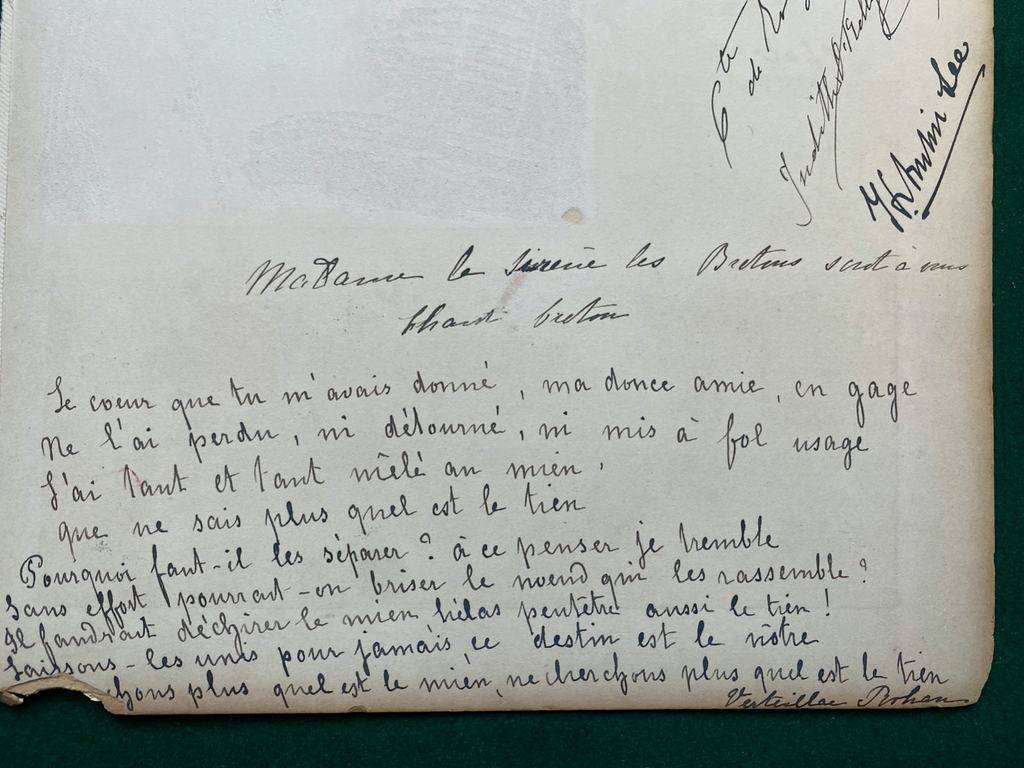 Cte de
Judith
Lee
Madame la sirène les Bretons sont à vous
Chant breton
Le coeur que tu m'avais donné, ma douce amie, en gage
Ne l'ai perdu, ni détourné, ni mis à fol usage
L'ai tant et tant mêlé au mien,
que ne sais plus quel est le tien
Pourquoi faut-il les séparer? à ce penser je tremble
Sans effort pourrait-on briser le noeud qui les rassemble?
Il faudrait déchirer le mien, hélas peutêtre aussi le tien!
Laissons-les unis pour jamais ce destin est le nôtre
chons plus quel est le mien, ne cherchons plus quel est le tien
Verteillac Rohan